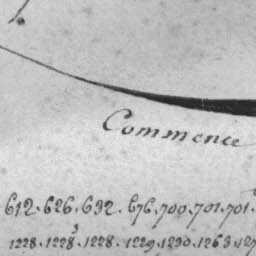 Commence
612. 626. 632. 676. 700. 701. 701.
1228. 1228. 1228. 1229. 1230. 1263. 127